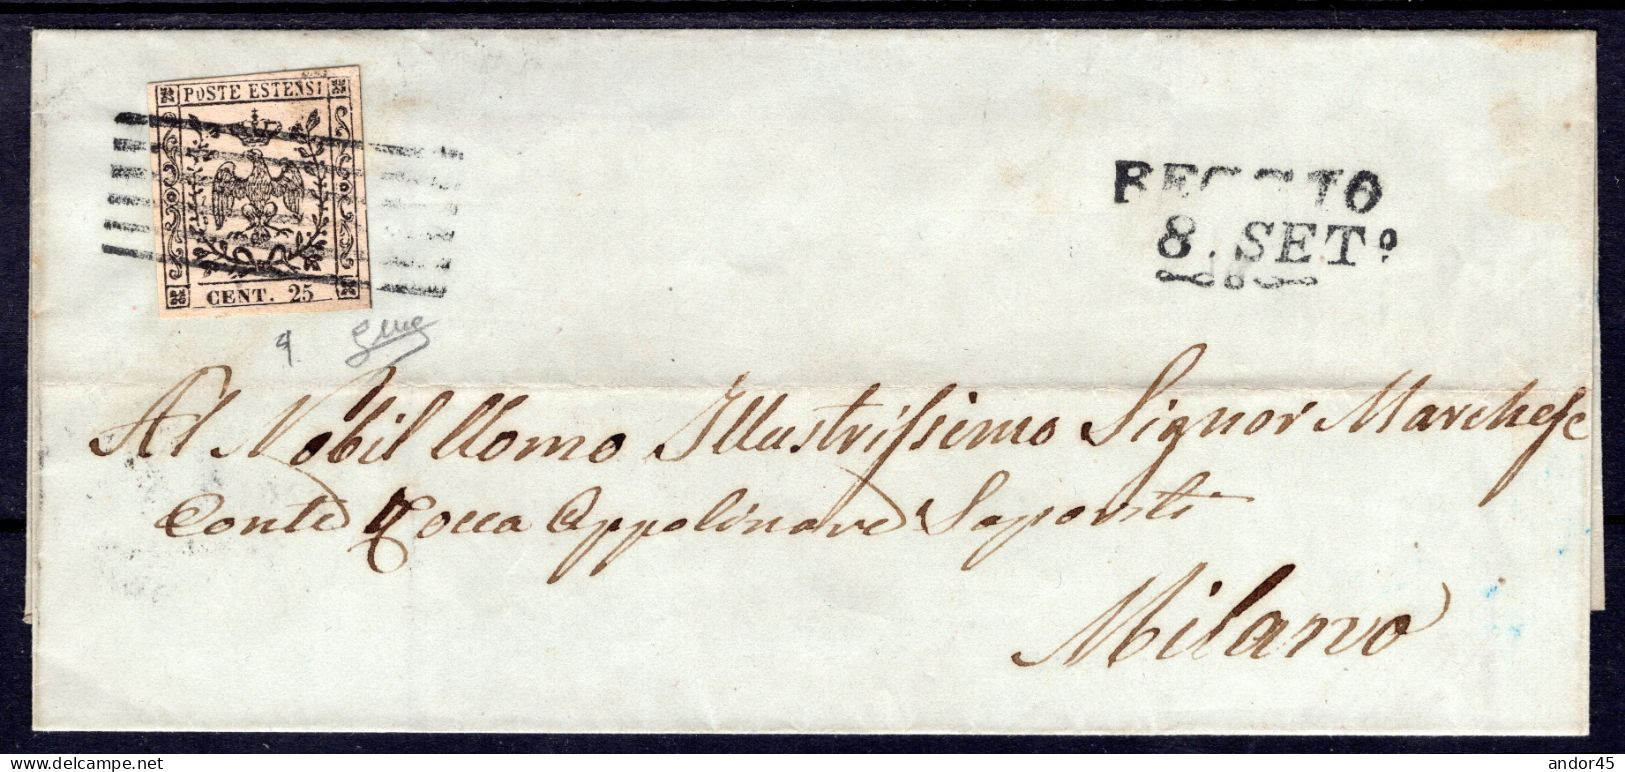 POSTE ESTENSI
CENT. 25
REGGIO
8. SET.º
Al Nobil Uomo Illustrissimo Signor Marchese
Conte Rocca Appolinare Saporiti
Milano
delcampe.net
andor45